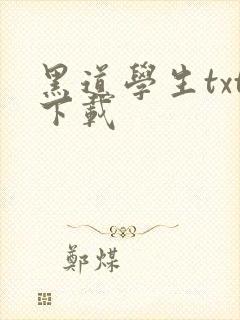 黑道學生txt
下載
鄭煤